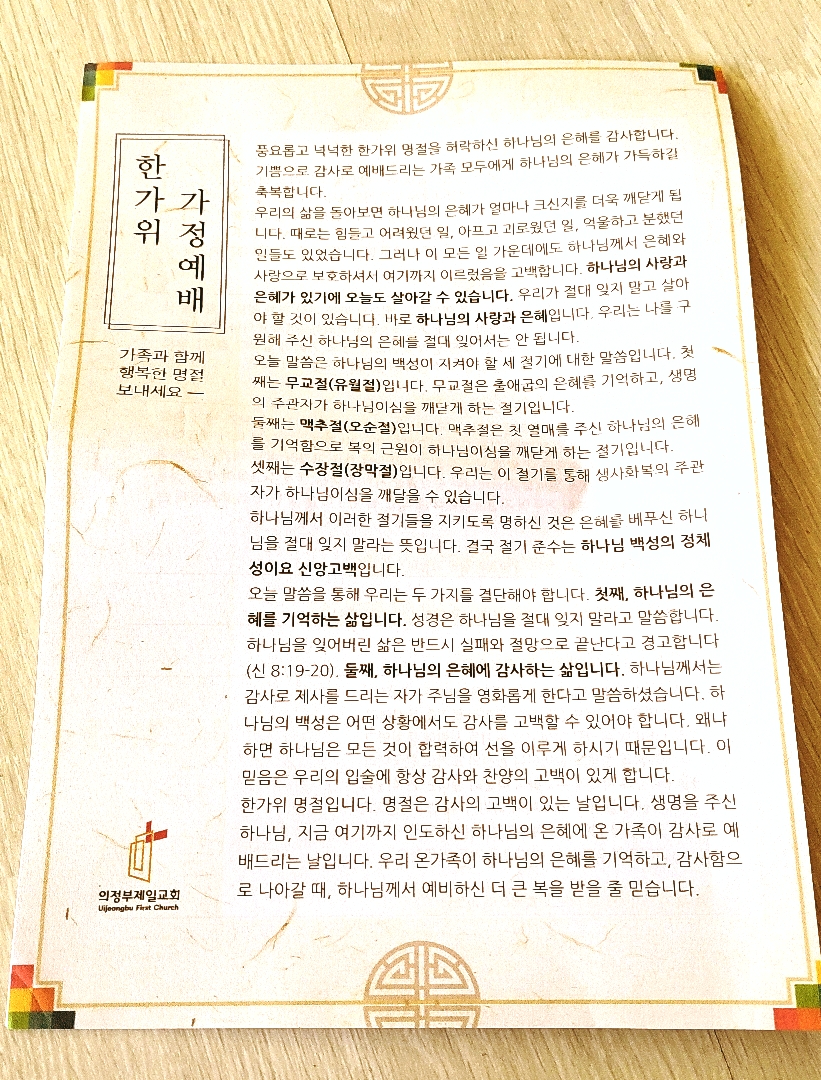 한가위
가정예배
가족과 함께
행복한 명절
보내세요 —
풍요롭고 넉넉한 한가위 명절을 허락하신 하나님의 은혜를 감사합니다.
기쁨으로 감사로 예배드리는 가족 모두에게 하나님의 은혜가 가득하길
축복합니다.
우리의 삶을 돌아보면 하나님의 은혜가 얼마나 크신지를 더욱 깨닫게 됩
니다. 때로는 힘들고 어려웠던 일, 아프고 괴로웠던 일, 억울하고 분했던
일들도 있었습니다. 그러나 이 모든 일 가운데에도 하나님께서 은혜와
사랑으로 보호하셔서 여기까지 이르렀음을 고백합니다. 하나님의 사랑과
은혜가 있기에 오늘도 살아갈 수 있습니다. 우리가 절대 잊지 말고 살아
야 할 것이 있습니다. 바로 하나님의 사랑과 은혜입니다. 우리는 나를 구
원해 주신 하나님의 은혜를 절대 잊어서는 안 됩니다.
오늘 말씀은 하나님의 백성이 지켜야 할 세 절기에 대한 말씀입니다. 첫
째는 무교절(유월절)입니다. 무교절은 출애굽의 은혜를 기억하고, 생명
의 주관자가 하나님이심을 깨닫게 하는 절기입니다.
둘째는 맥추절(오순절)입니다. 맥추절은 첫 열매를 주신 하나님의 은혜
를 기억함으로 복의 근원이 하나님이심을 깨닫게 하는 절기입니다.
셋째는 수장절(장막절)입니다. 우리는 이 절기를 통해 생사화복의 주관
자가 하나님이심을 깨달을 수 있습니다.
하나님께서 이러한 절기들을 지키도록 명하신 것은 은혜를 베푸신 하나
님을 절대 잊지 말라는 뜻입니다. 결국 절기 준수는 하나님 백성의 정체
성이요 신앙고백입니다.
오늘 말씀을 통해 우리는 두 가지를 결단해야 합니다. 첫째, 하나님의 은
혜를 기억하는 삶입니다. 성경은 하나님을 절대 잊지 말라고 말씀합니다.
하나님을 잊어버린 삶은 반드시 실패와 절망으로 끝난다고 경고합니다
(신 8:19-20). 둘째, 하나님의 은혜에 감사하는 삶입니다. 하나님께서는
감사로 제사를 드리는 자가 주님을 영화롭게 한다고 말씀하셨습니다. 하
나님의 백성은 어떤 상황에서도 감사를 고백할 수 있어야 합니다. 왜냐
하면 하나님은 모든 것이 합력하여 선을 이루게 하시기 때문입니다. 이
믿음은 우리의 입술에 항상 감사와 찬양의 고백이 있게 합니다.
한가위 명절입니다. 명절은 감사의 고백이 있는 날입니다. 생명을 주신
하나님, 지금 여기까지 인도하신 하나님의 은혜에 온 가족이 감사로 예
배드리는 날입니다. 우리 온가족이 하나님의 은혜를 기억하고, 감사함으
로 나아갈 때, 하나님께서 예비하신 더 큰 복을 받을 줄 믿습니다.
의정부제일교회
Uijeongbu First Church